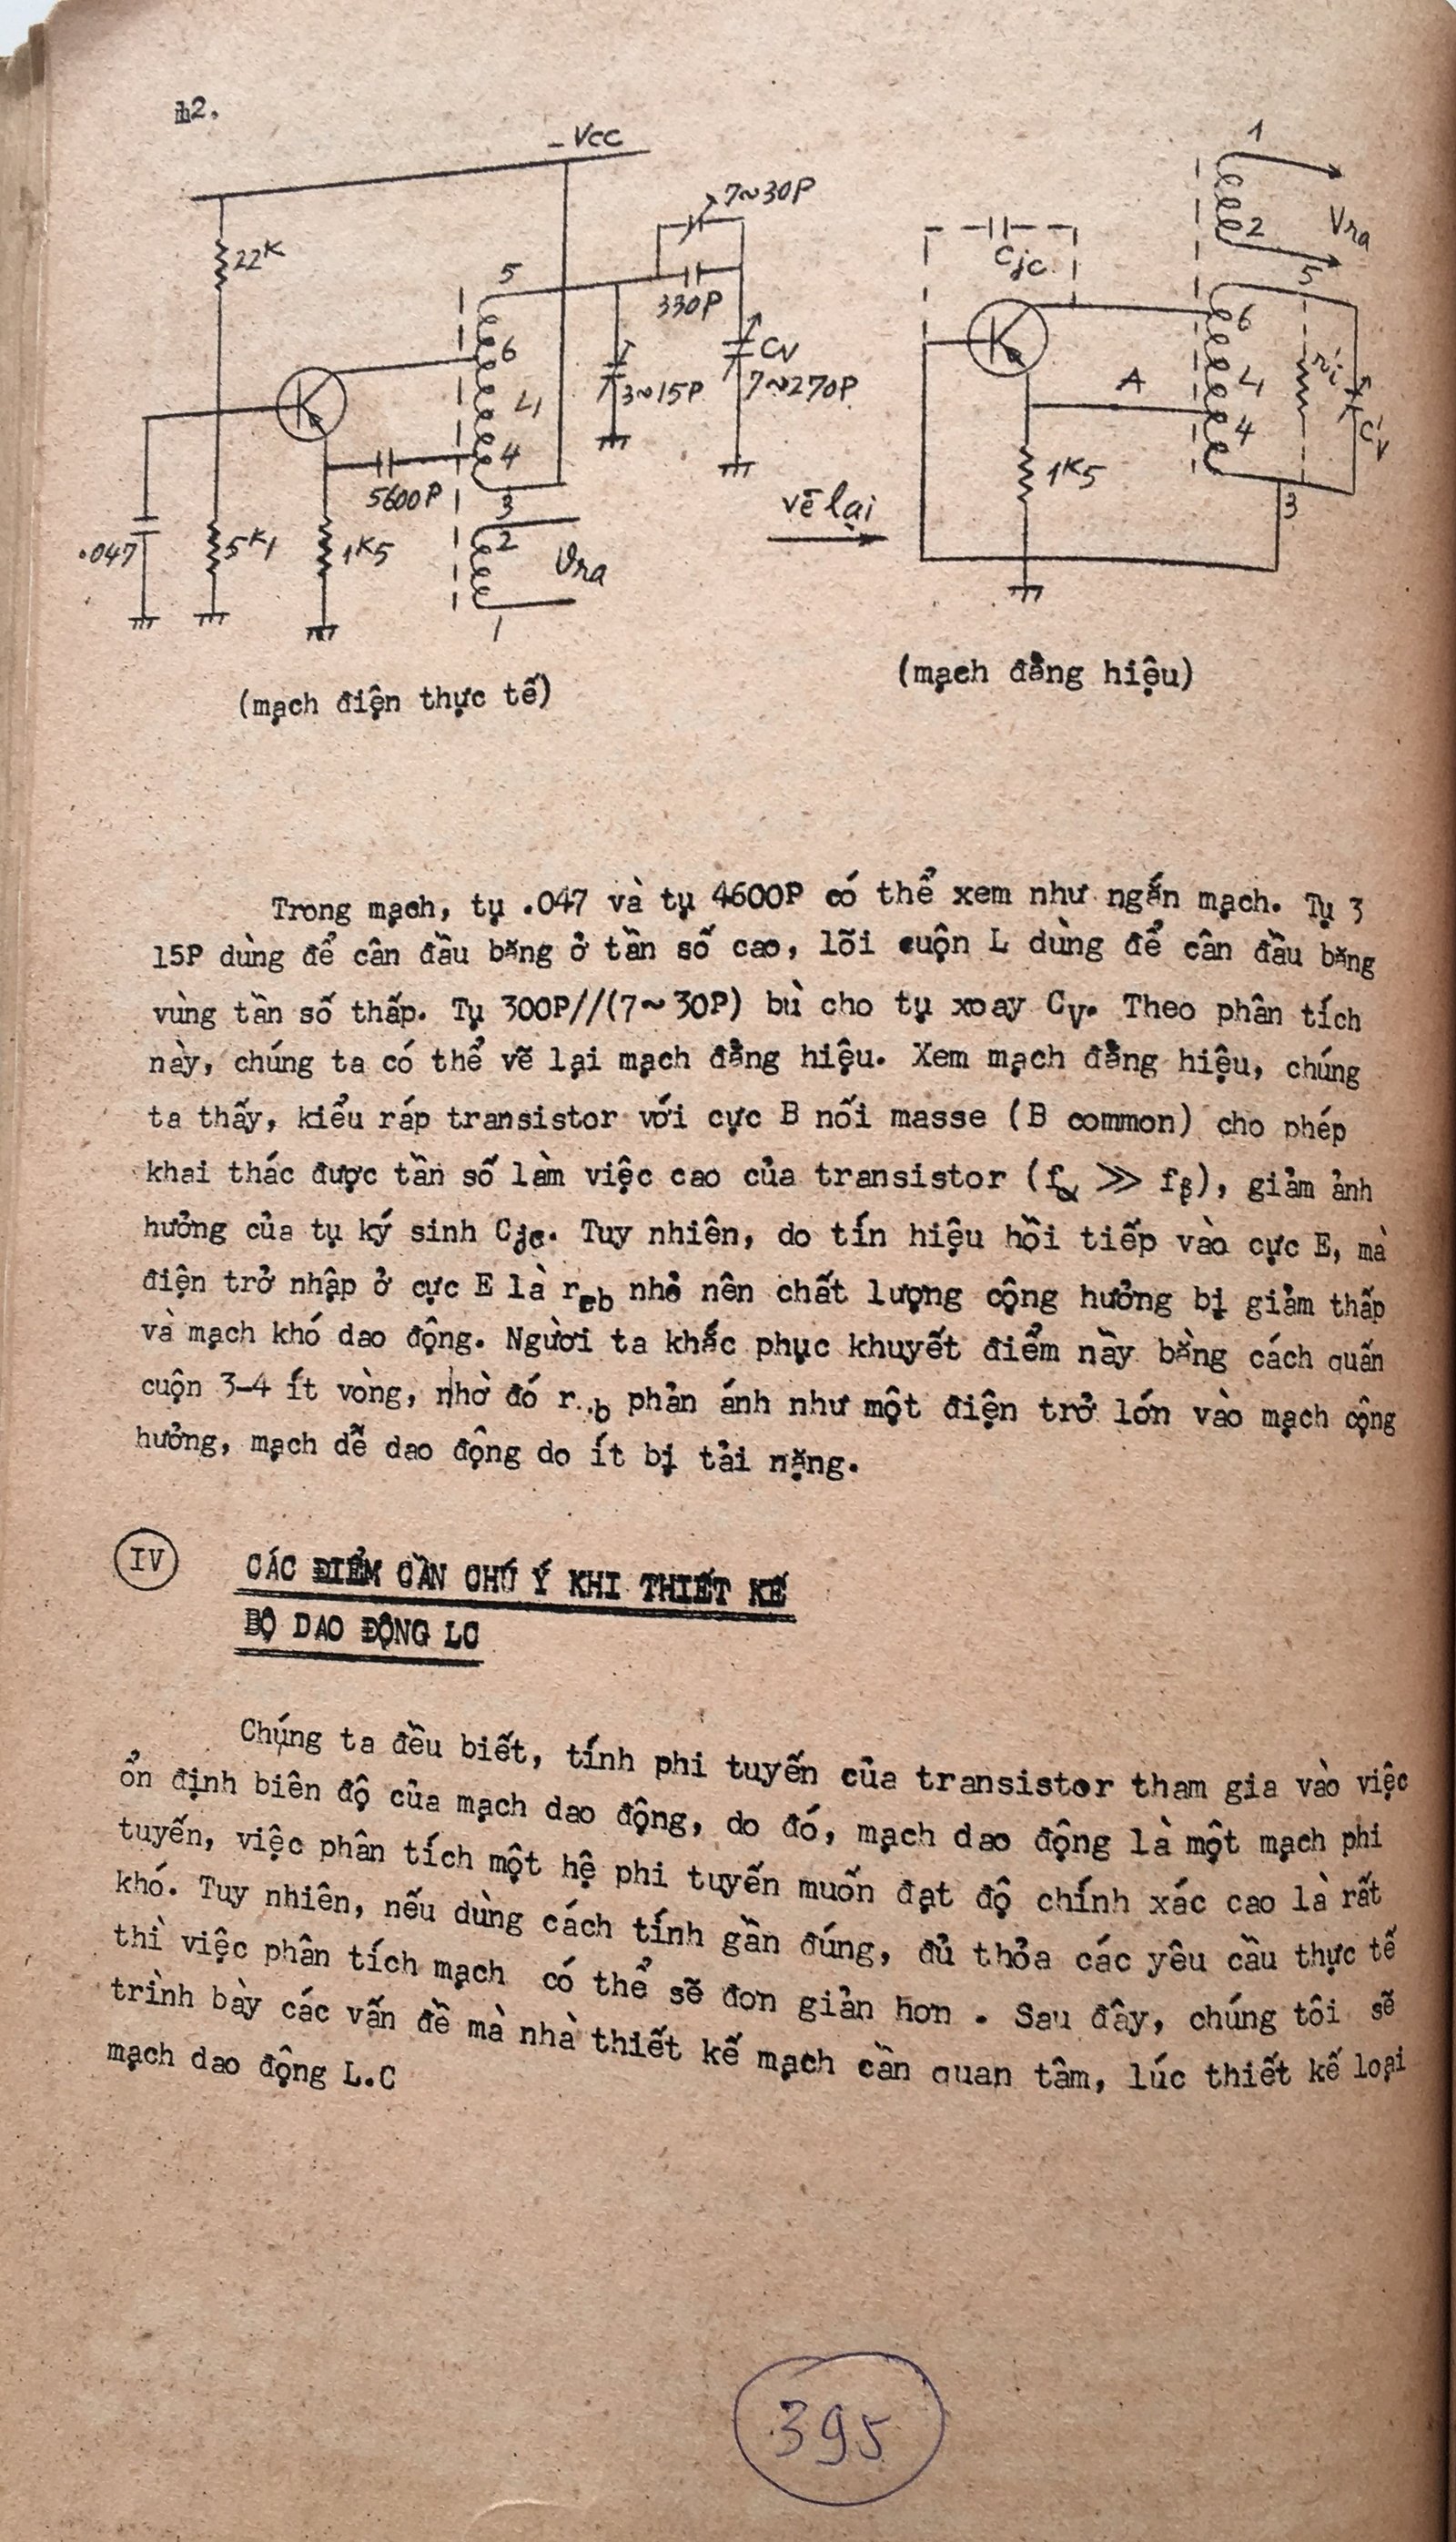 h2.
-Vcc
22K
5
6
L1
4
3
2
1
7~30P
330P
3~15P
CV
7~270P
5600P
.047
5K1
1K5
Vra
vẽ lại
1
2
Vra
Cjc
5
6
L1
4
3
r'i
C'v
A
1K5
(mạch điện thực tế)
(mạch đẳng hiệu)
Trong mạch, tụ .047 và tụ 4600P có thể xem như ngắn mạch. Tụ 3
15P dùng để cân đầu băng ở tần số cao, lõi cuộn L dùng để cân đầu băng
vùng tần số thấp. Tụ 300P//(7~30P) bù cho tụ xoay CV. Theo phân tích
này, chúng ta có thể vẽ lại mạch đẳng hiệu. Xem mạch đẳng hiệu, chúng
ta thấy, kiểu ráp transistor với cực B nối masse (B common) cho phép
khai thác được tần số làm việc cao của transistor (fα >> fβ), giảm ảnh
hưởng của tụ ký sinh Cjc. Tuy nhiên, do tín hiệu hồi tiếp vào cực E, mà
điện trở nhập ở cực E là reb nhỏ nên chất lượng cộng hưởng bị giảm thấp
và mạch khó dao động. Người ta khắc phục khuyết điểm nầy bằng cách quấn
cuộn 3-4 ít vòng, nhờ đó r..b phản ánh như một điện trở lớn vào mạch cộng
hưởng, mạch dễ dao động do ít bị tải nặng.
IV
CÁC ĐIỂM CẦN CHÚ Ý KHI THIẾT KẾ
BỘ DAO ĐỘNG LC
Chúng ta đều biết, tính phi tuyến của transistor tham gia vào việc
ổn định biên độ của mạch dao động, do đó, mạch dao động là một mạch phi
tuyến, việc phân tích một hệ phi tuyến muốn đạt độ chính xác cao là rất
khó. Tuy nhiên, nếu dùng cách tính gần đúng, đủ thỏa các yêu cầu thực tế
thì việc phân tích mạch có thể sẽ đơn giản hơn . Sau đây, chúng tôi sẽ
trình bày các vấn đề mà nhà thiết kế mạch cần quan tâm, lúc thiết kế loại
mạch dao động L.C
395